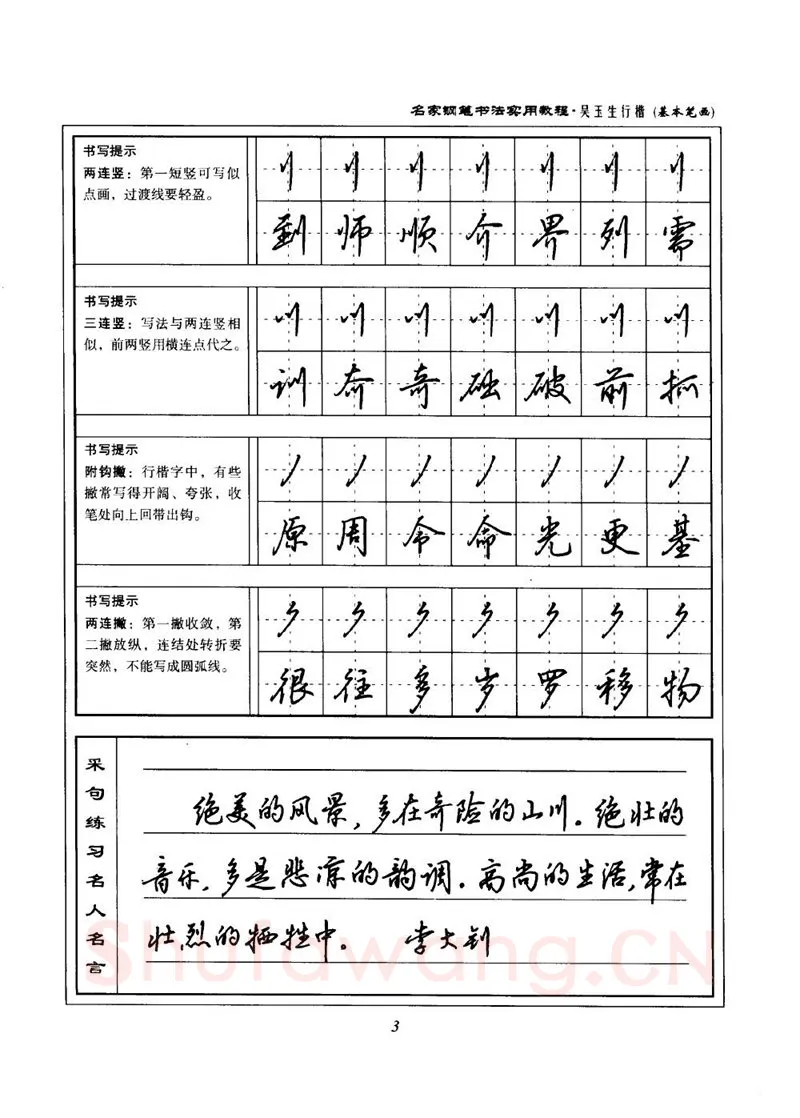 名家钢笔书法实用教程·吴玉生行楷(基本笔画)
书写提示
两连竖：第一短竖可写似
点画，过渡线要轻盈。
到 师 顺 介 界 列 需
书写提示
三连竖：写法与两连竖相
似，前两竖用横连点代之。
训 奇 础 破 前 抓
书写提示
附钩撇：行楷字中，有些
撇常写得开阔、夸张，收
笔处向上回带出钩。
原 周 令 命 光 更 基
书写提示
两连撇：第一撇收敛，第
二撇放纵，连结处转折要
突然，不能写成圆弧线。
很 往 多 岁 罗 移 物
采句练习名人名言
绝美的风景，多在奇险的山川。绝壮的
音乐，多是悲凉的韵调。高尚的生活，常在
壮烈的牺牲中。 李大钊
Shufawang.CN
3